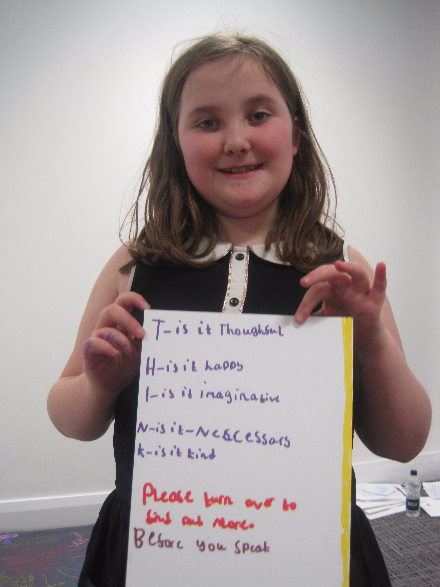 T-is it Thoughtful
H-is it happy
I-is it imaginative
N-is it-Neccessars
K-is it kind
Please turn over to
find out more.
Before you speak